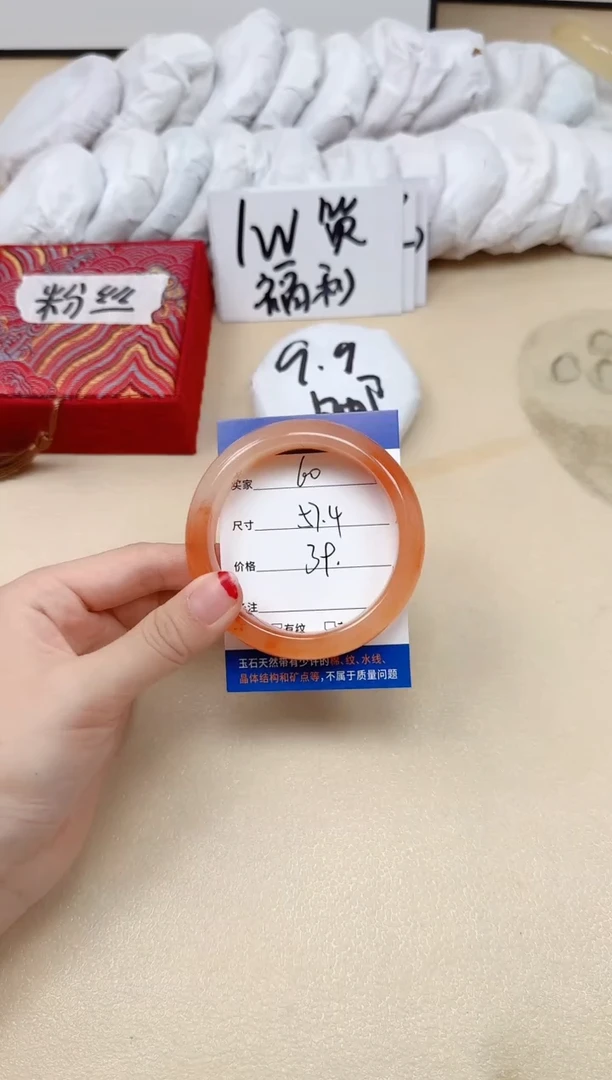 1W赞
福利
粉丝
9.9
买家 60
尺寸 57.4
价格 39.
注
有纹
玉石天然带有少许的棉、纹、水线、
晶体结构和矿点等,不属于质量问题